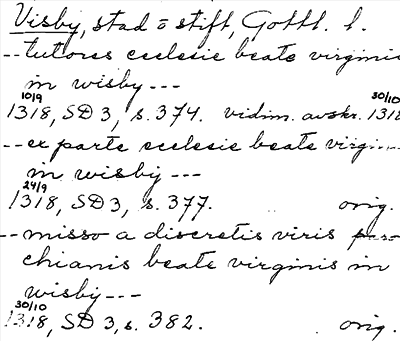 Visby, stad o stift, Gotl. l.
--tutores ecclesie beate virginis
in wisby---
10/9 30/10
1318, SD 3, s. 374. vidim. avskr. 1318
--ex parte ecclesie beate virginis
in wisby---
24/9
1318, SD 3, s. 377. orig.
--misso a discretis viris paro-
chianis beate virginis in
wisby---
30/10
1318, SD 3, s. 382. orig.